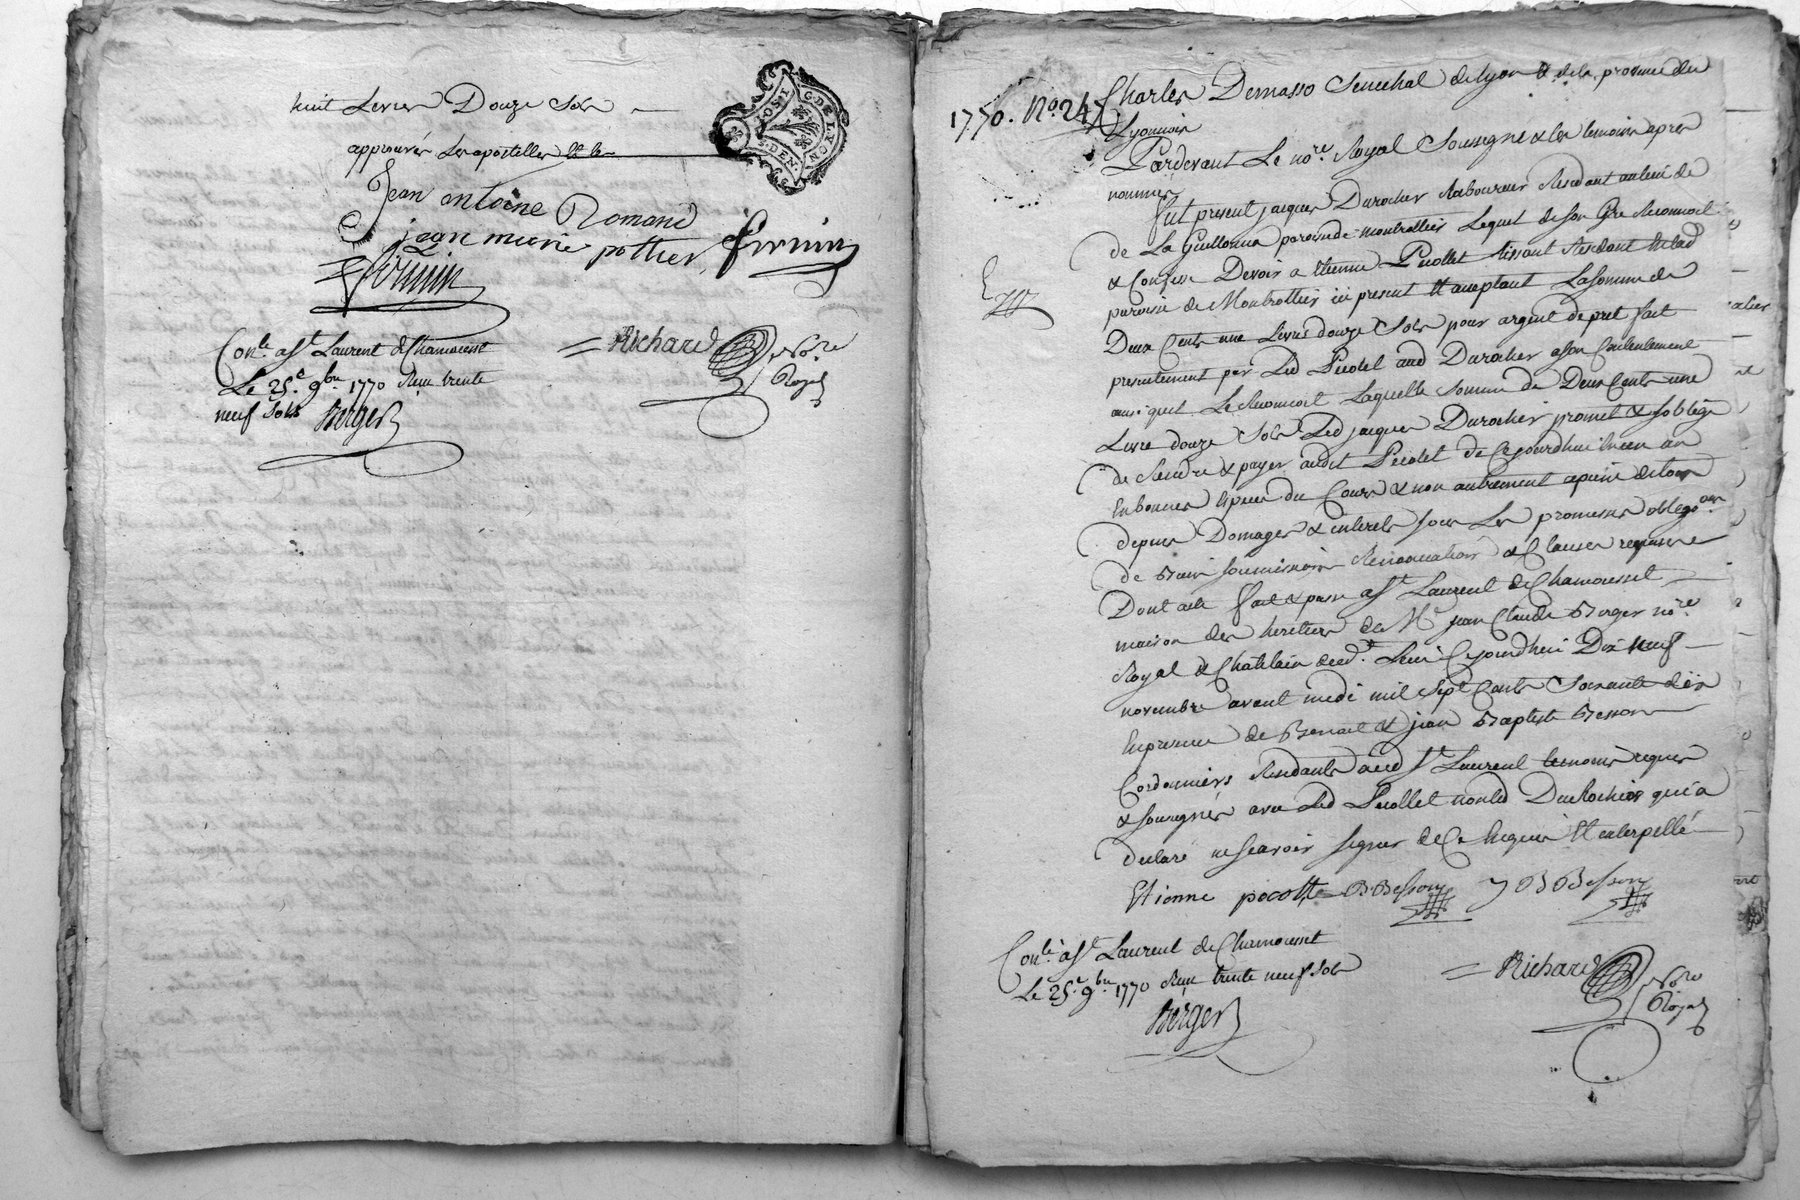 huit Livres Douze Sols
approuvés Les apostilles
Jean antoine Romand
jean marie pottier firmin
firmin
Conlé à St Laurent de Chamousset
Le 25e 9bre 1770 Reçu trente
neuf sols Berger
Richard Nore
Royal
JOSI G. DE LYON S. DEN.
1770. No. 247
Charles Demasso Senechal de Lyon & de la province du
Lyonnois
Pardevant Le nore Royal Soussigné & les temoins apres
nommés
fut present jacques Durocher Laboureur Residant au lieu de
de La Guillonna paroisse de montrottier Lequel de son Gré Reconnoit
& Confesse Devoir a Etienne Picollet tissant Residant audit
paroisse de Montrottier ici present & acceptant La somme de
Deux Cents une Livres douze Sols pour argent de pret fait
presentement par Led Picotet aud Durocher a son Contentement
ainsi quil Le Reconnoit Laquelle somme de Deux Cents une
Livre douze Sols Led jacques Durocher promet & soblige
de Rendre & payer audit Picotet de Cejourdhui en un an
En bonnes Especes du Cours & non autrement a peine de tous
depens Domages & interets sous Les promesses obligoons
de biens soumissions Renonciations & Clauses requises
Dont acte fait & passé a St Laurent de Chamousset
maison des heritiers de Me jean Claude Berger nore
Royal & Chatelain dud. Lieu Cejourdhui Dix neuf
novembre avant midi mil Sept Cents Soixante dix
En presence de Benoit & jean Baptiste Besson
Cordonniers Residants aud St Laurent temoins requis
& soussignés avec Led Picollet non led Durocher qui a
declaré ne scavoir signer de Ce Enquis & interpellé
Etienne pocollt B Besson J B Besson
Conlé à St Laurent de Chamousset
Le 25e 9bre 1770 Reçu trente neuf sols
Berger
Richard Nore
Royal